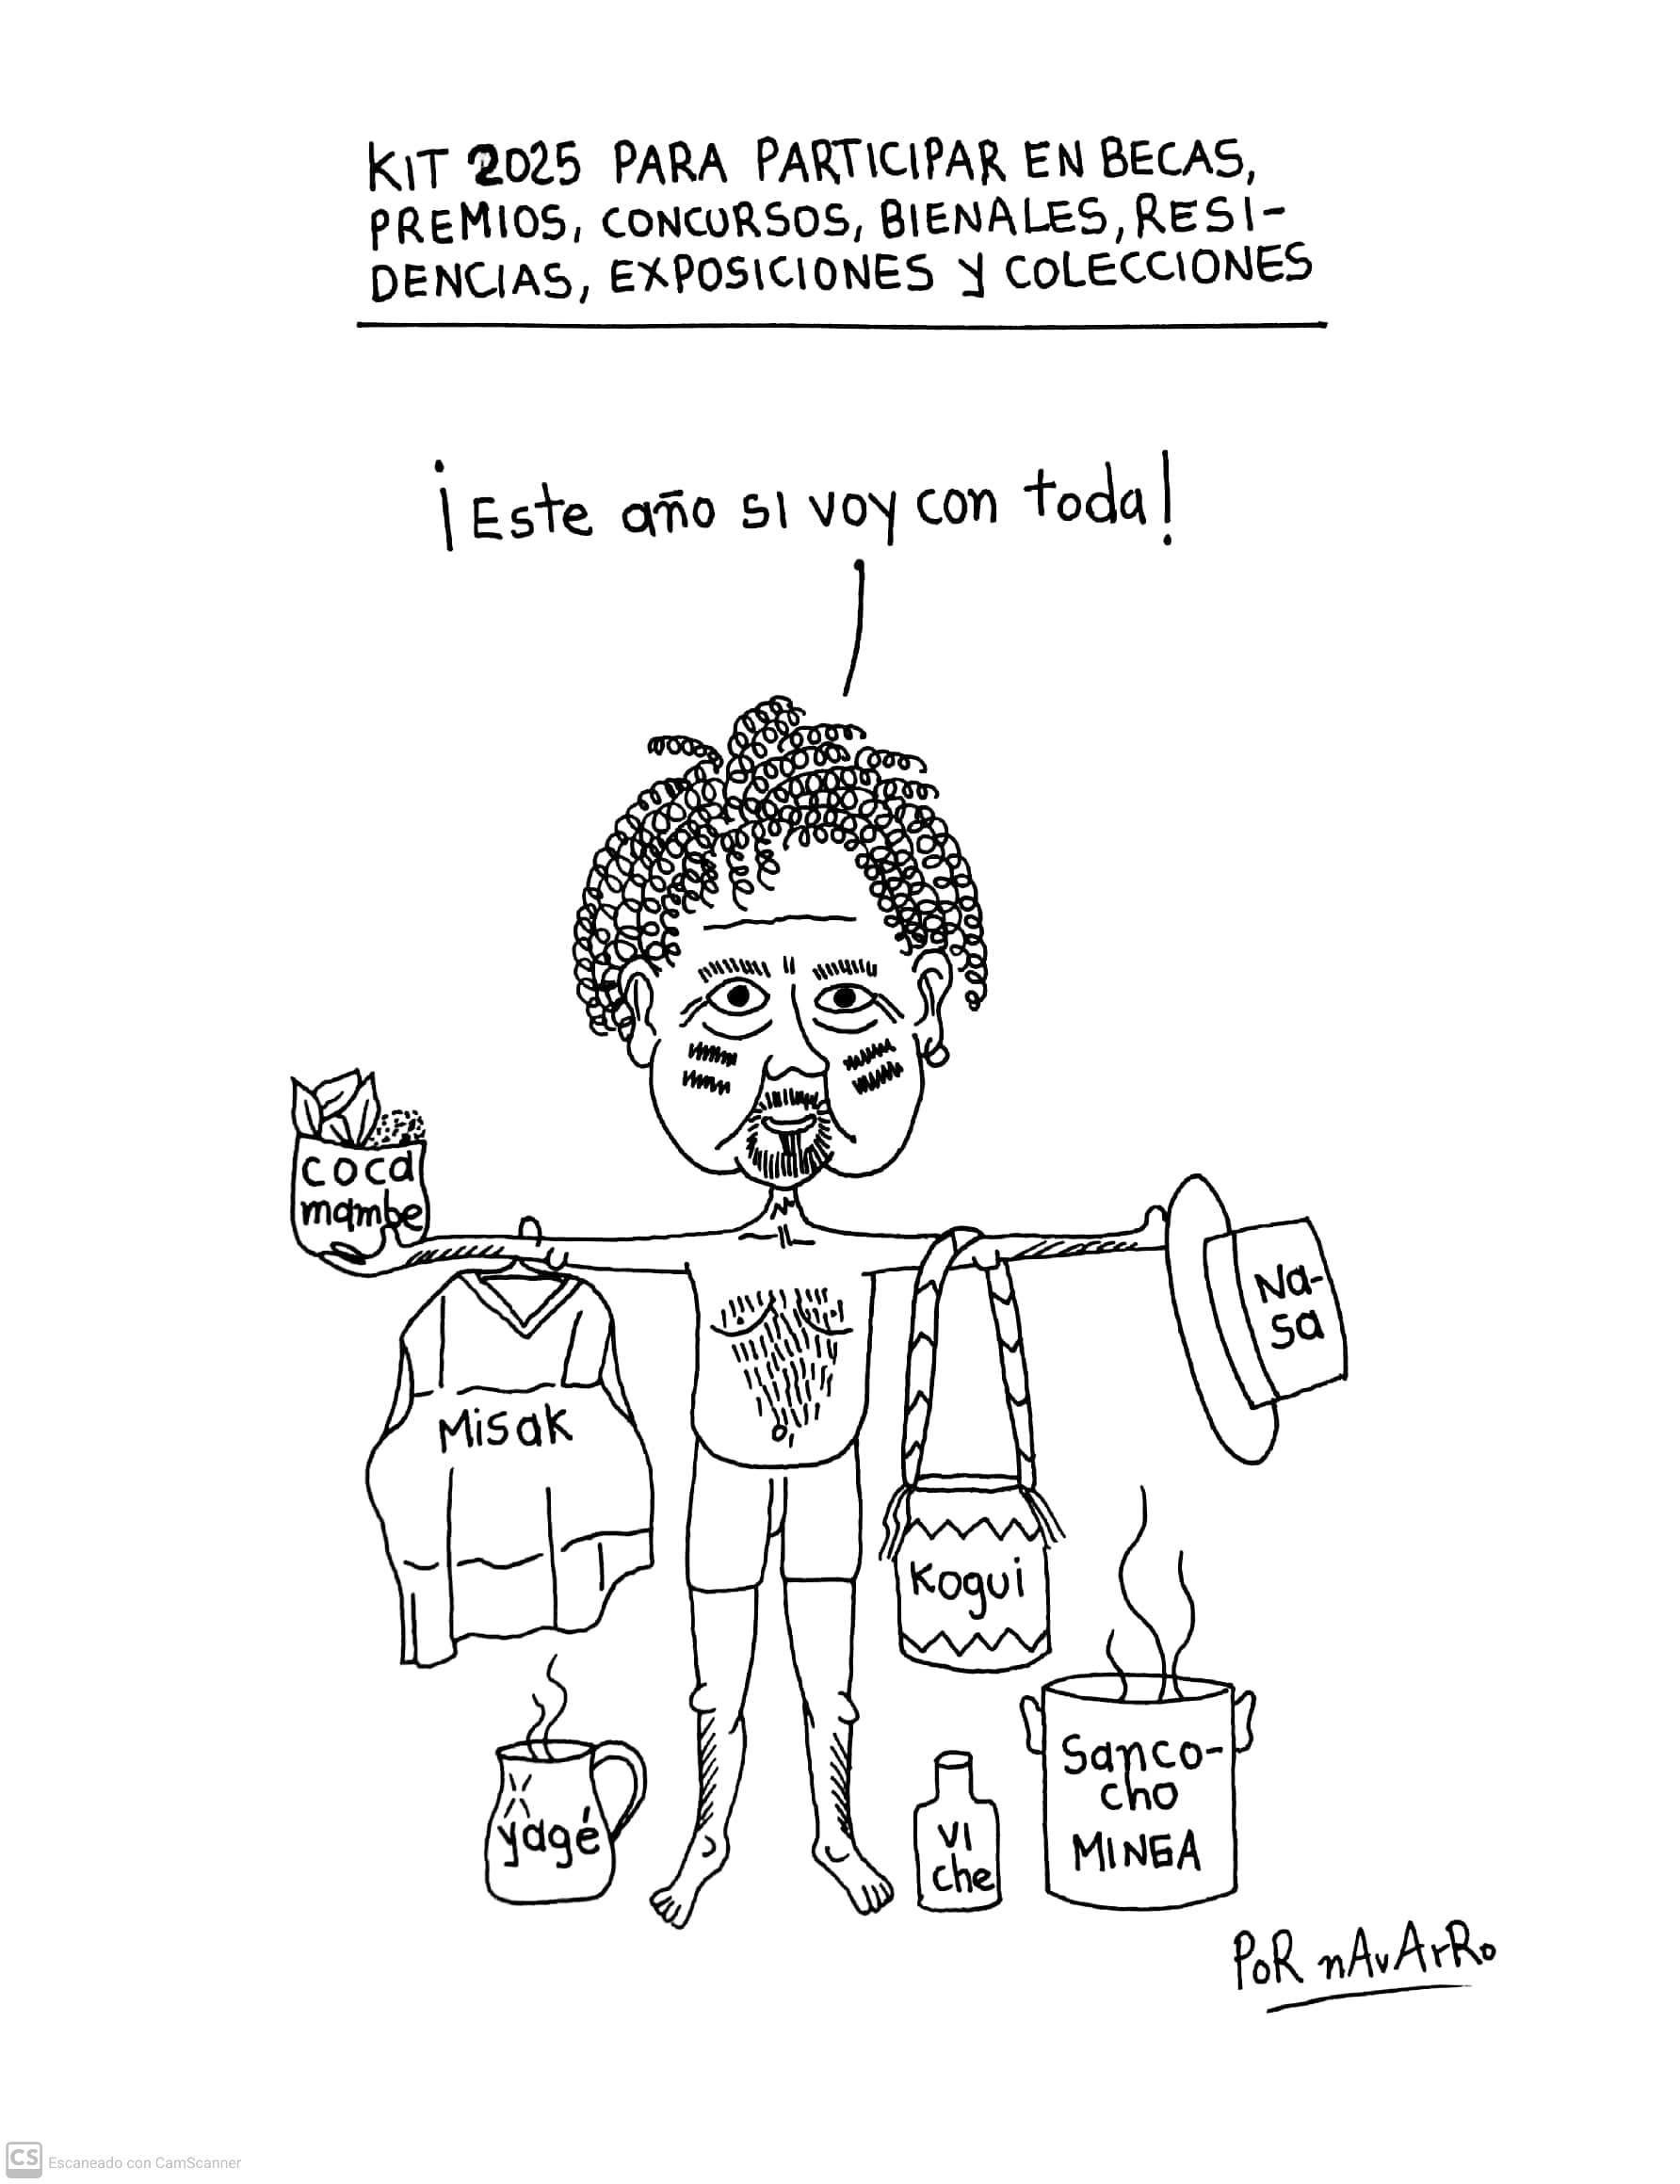 KIT 2025 PARA PARTICIPAR EN BECAS,
PREMIOS, CONCURSOS, BIENALES, RESI-
DENCIAS, EXPOSICIONES Y COLECCIONES
¡Este año si voy con toda!
coca
mambe
Na-
sa
Misak
Kogui
yagé
vi
che
Sanco-
cho
MINGA
PoR nAvArRo
CS Escaneado con CamScanner